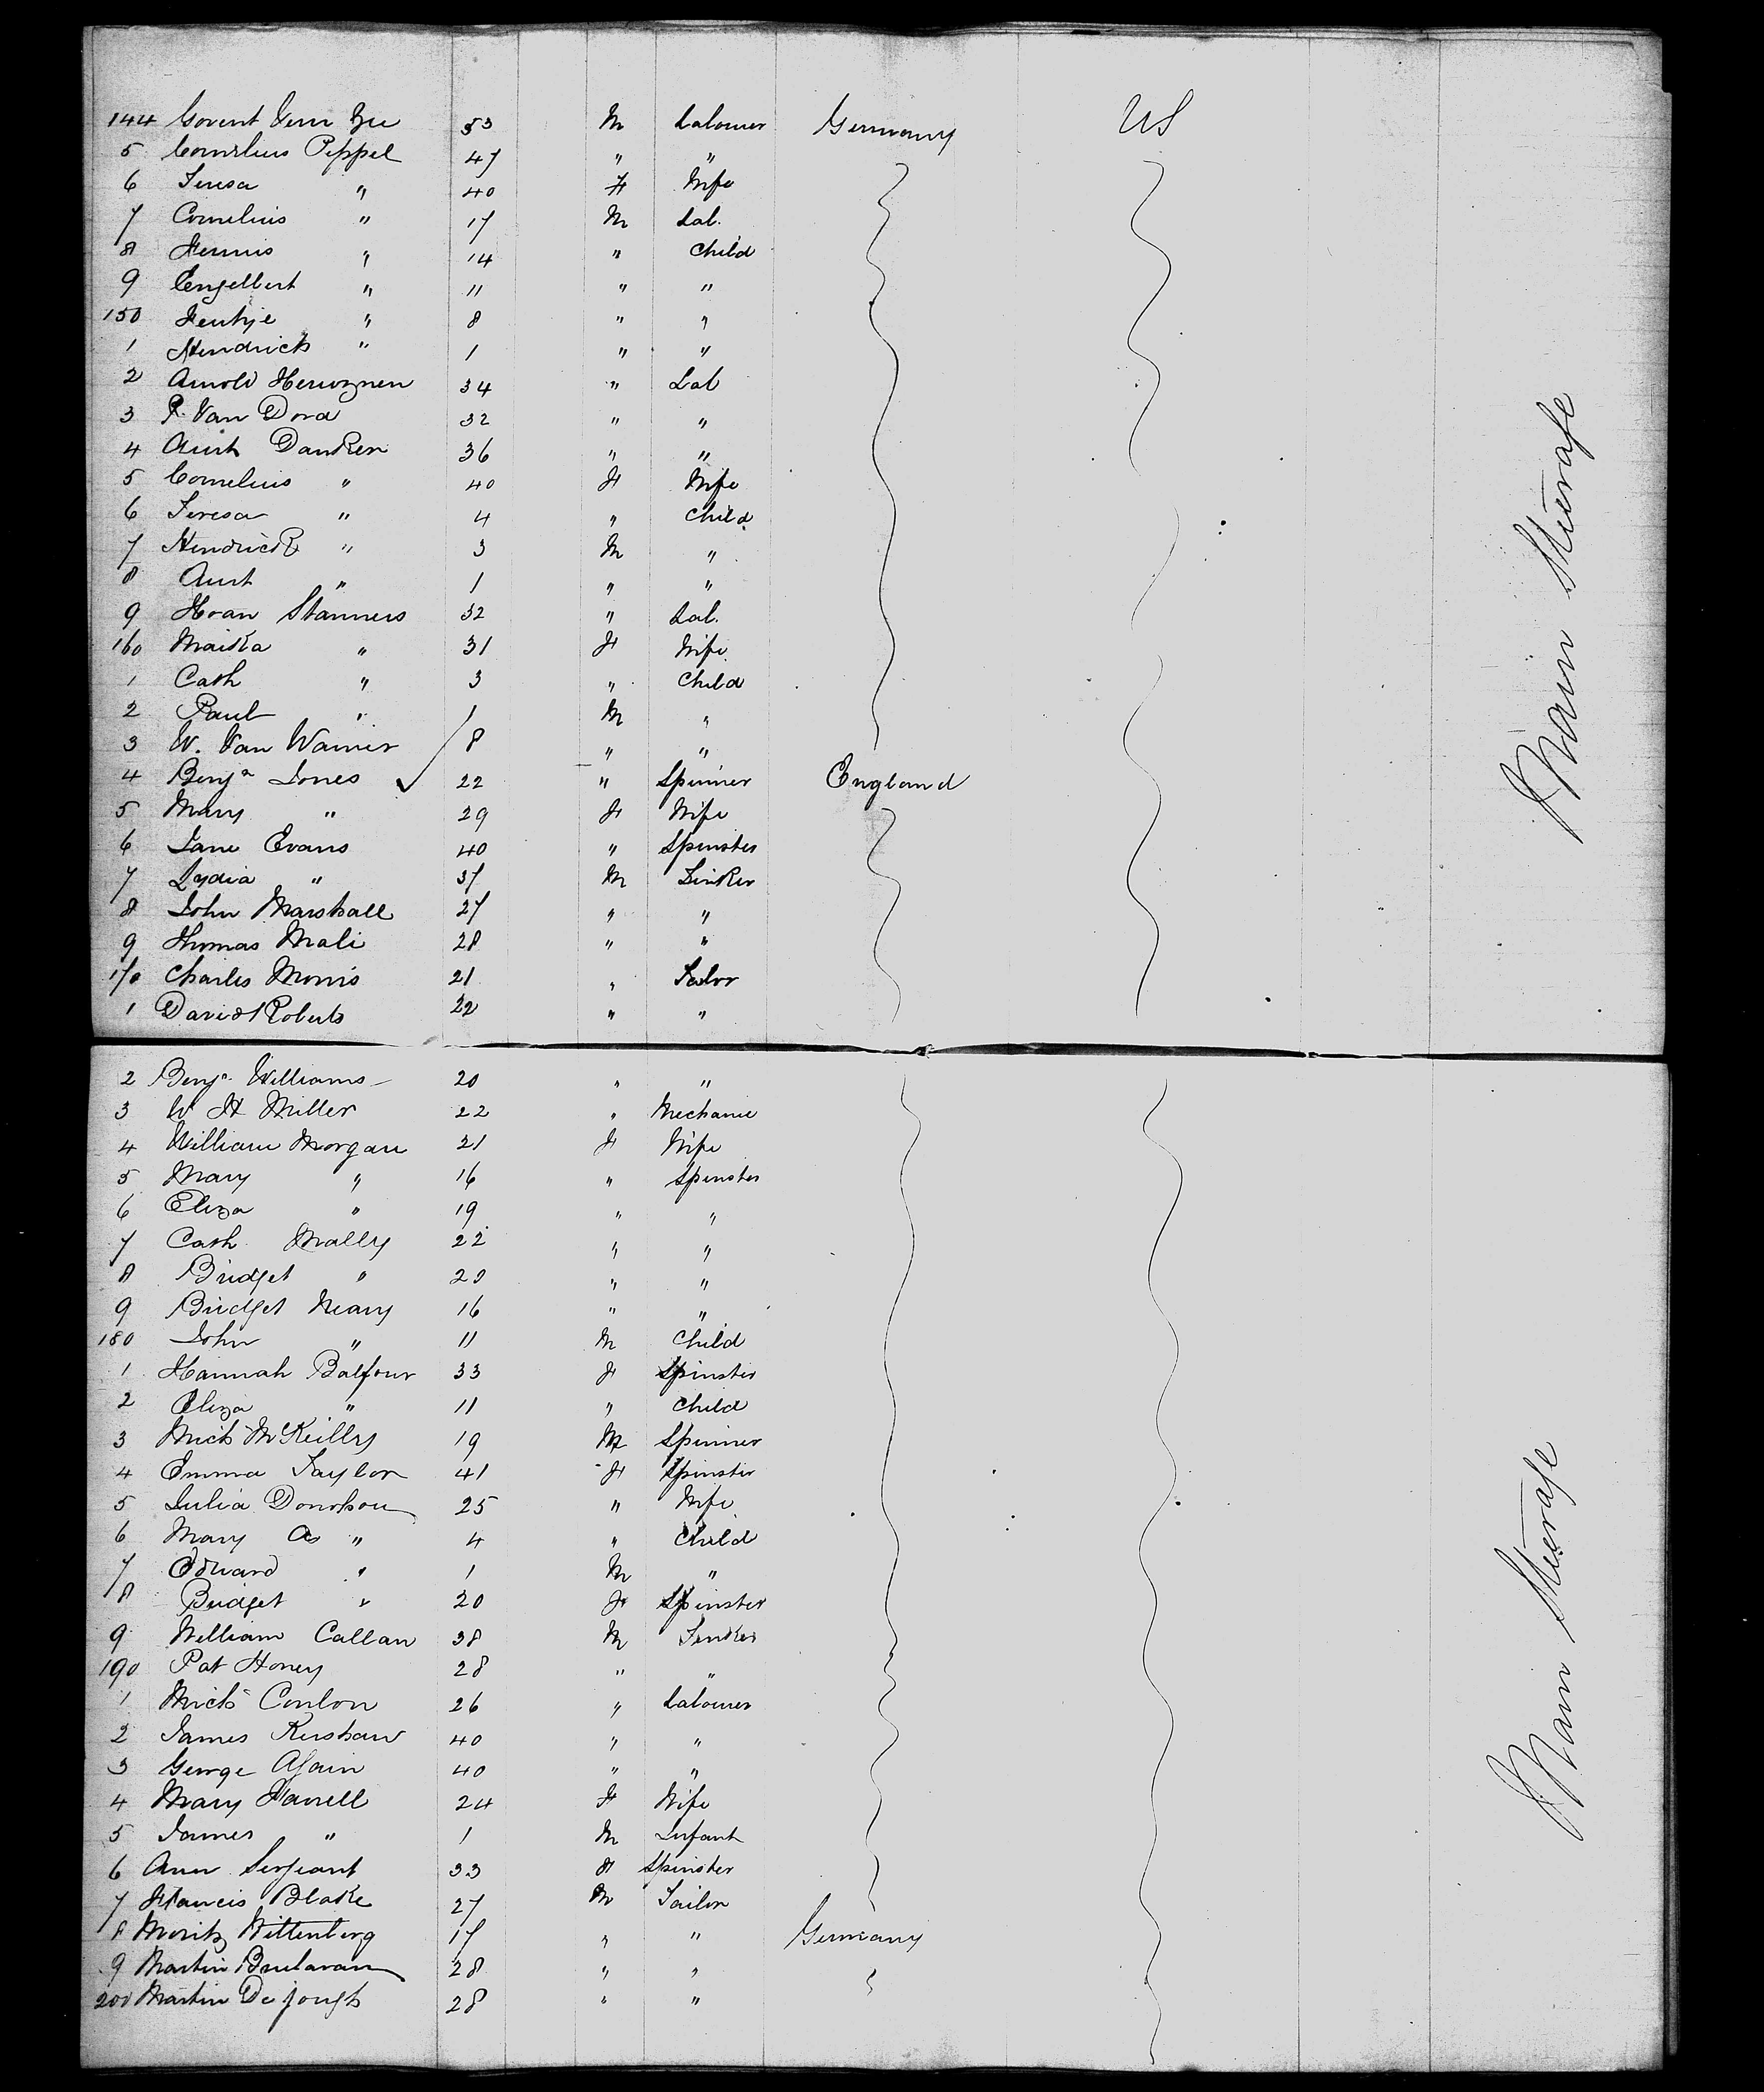 144 Govert Vern Zee 53 M Labourer Germany US
5 Cornelius Peppel 47 " "
6 Teresa " 40 F Wife
7 Cornelius " 17 M Lab.
8 Hermis " 14 " Child
9 Engelbert " 11 " "
150 Hentije " 8 " "
1 Hendrick " 1 " "
2 Arnold 34 " Lab
3 P. Van Dord 32 " "
4 Aurt Danken 36 " "
5 Cornelius " 40 F Wife
6 Teresa " 4 " Child
7 Hendrick " 3 M "
8 Aurt " 1 " "
9 Hoan Stanners 32 " Lab.
160 Maika " 31 F Wife
1 Cath " 3 " Child
2 Paul " 1 M "
3 W. Van Warner 8 " "
4 Benja Jones 22 " Spinner England
5 Mary " 29 F Wife
6 Jane Evans 40 " Spinster
7 Lydia " 37 M Tinker
8 John Marshall 27 " "
9 Thomas Mali 28 " "
170 Charles Morris 21 " Talor
1 David Roberts 22 " "
Mann Steerage
2 Benja Williams 20 " "
3 W H Miller 22 " Mechanic
4 William Morgan 21 F Wife
5 Mary " 16 " Spinster
6 Eliza " 19 " "
7 Cath Mally 22 " "
8 Bridget " 20 " "
9 Bridget Neary 16 " "
180 John " 11 M Child
1 Hannah Balfour 33 F Spinster
2 Eliza " 11 " Child
3 Mick McKeilly 19 M Spinner
4 Emma Taylor 41 F Spinster
5 Julia Donohou 25 " Wife
6 Mary A " 4 " Child
7 Edward " 1 M "
8 Bridget " 20 F Spinster
9 William Callan 38 M Tinker
190 Pat Honey 28 " "
1 Mick Conlon 26 " Labourer
2 James Kershaw 40 " "
3 George Again 40 " "
4 Mary Farrell 24 F Wife
5 James " 1 M Infant
6 Ann Serjeant 33 F Spinster
7 Francis Blake 27 M Tailor
8 Moritz Wittenberg 17 " " Germany
9 Martin 28 " "
200 Martin De Jough 28 " "
Mann Steerage